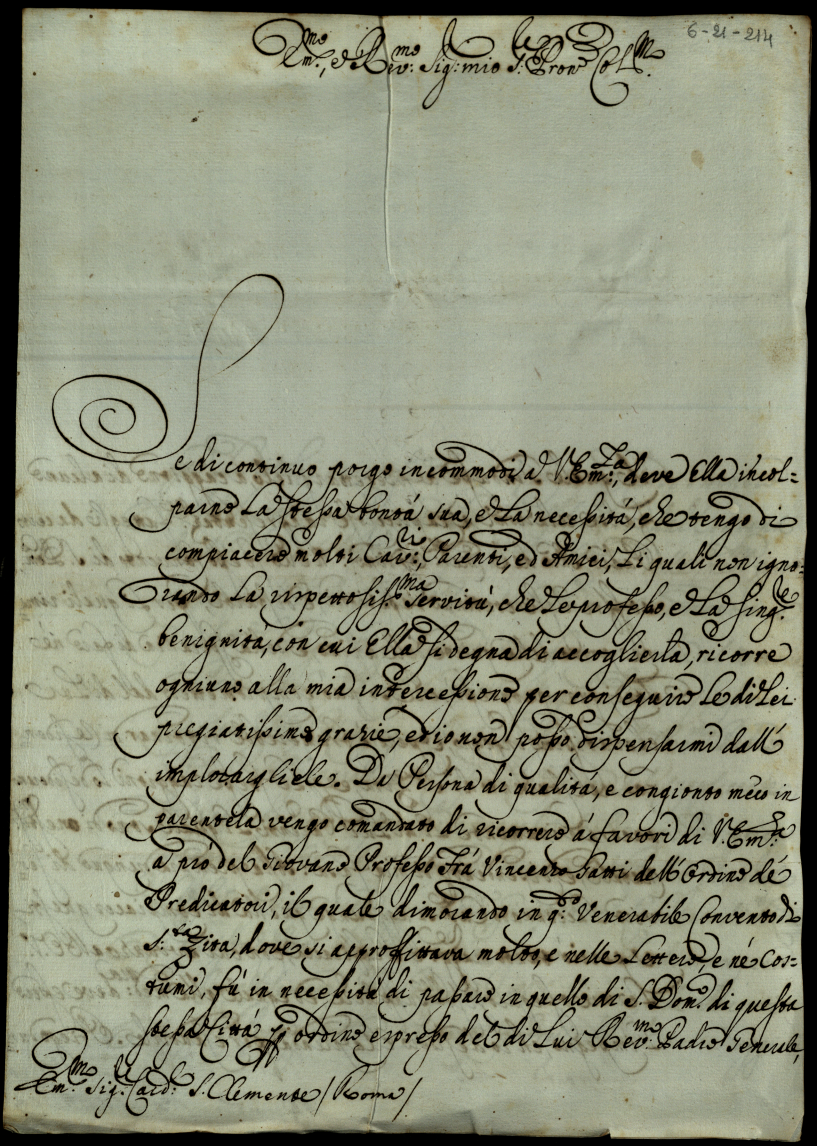 6-21-214
Em.mo, e Rev.mo Sig: mio S: Pron.e Col.mo
Se di continuo porgo incommodi a V. Em.za, deve Ella incol=
parne La stessa bontà sua, e La necessità, che tengo di
compiacere molti Cav.ri, Parenti, ed Amici, Li quali non igno=
rando La rispettosis.ma servitù, che Le professo, e La sing.le
benignita, con cui Ella si degna di accoglierla, ricorre
ogniuno alla mia intercessione per conseguire Le di Lei
pregiatissime grazie, ed io non posso dispensarmi dall'
implorargliele. Da Persona di qualità, e congionto meco in
parentela vengo comandato di ricorrere á favori di V. Em.za
a prò del Giovane Professo Frá Vincenzo Gatti dell'Ordine dé
Predicatori, il quale dimorando in q.o Venerabile Convento di
S.ta Zita, dove si approffittava molto, e nelle Lettere, e né Cos=
tumi, fú in necessità di passare in quello di S. Dom.o di questa
stessa Città p ordine espresso del di Lui Rev.mo Padre Generale,
Em.mo Sig.r Card: S. Clemente / Roma /